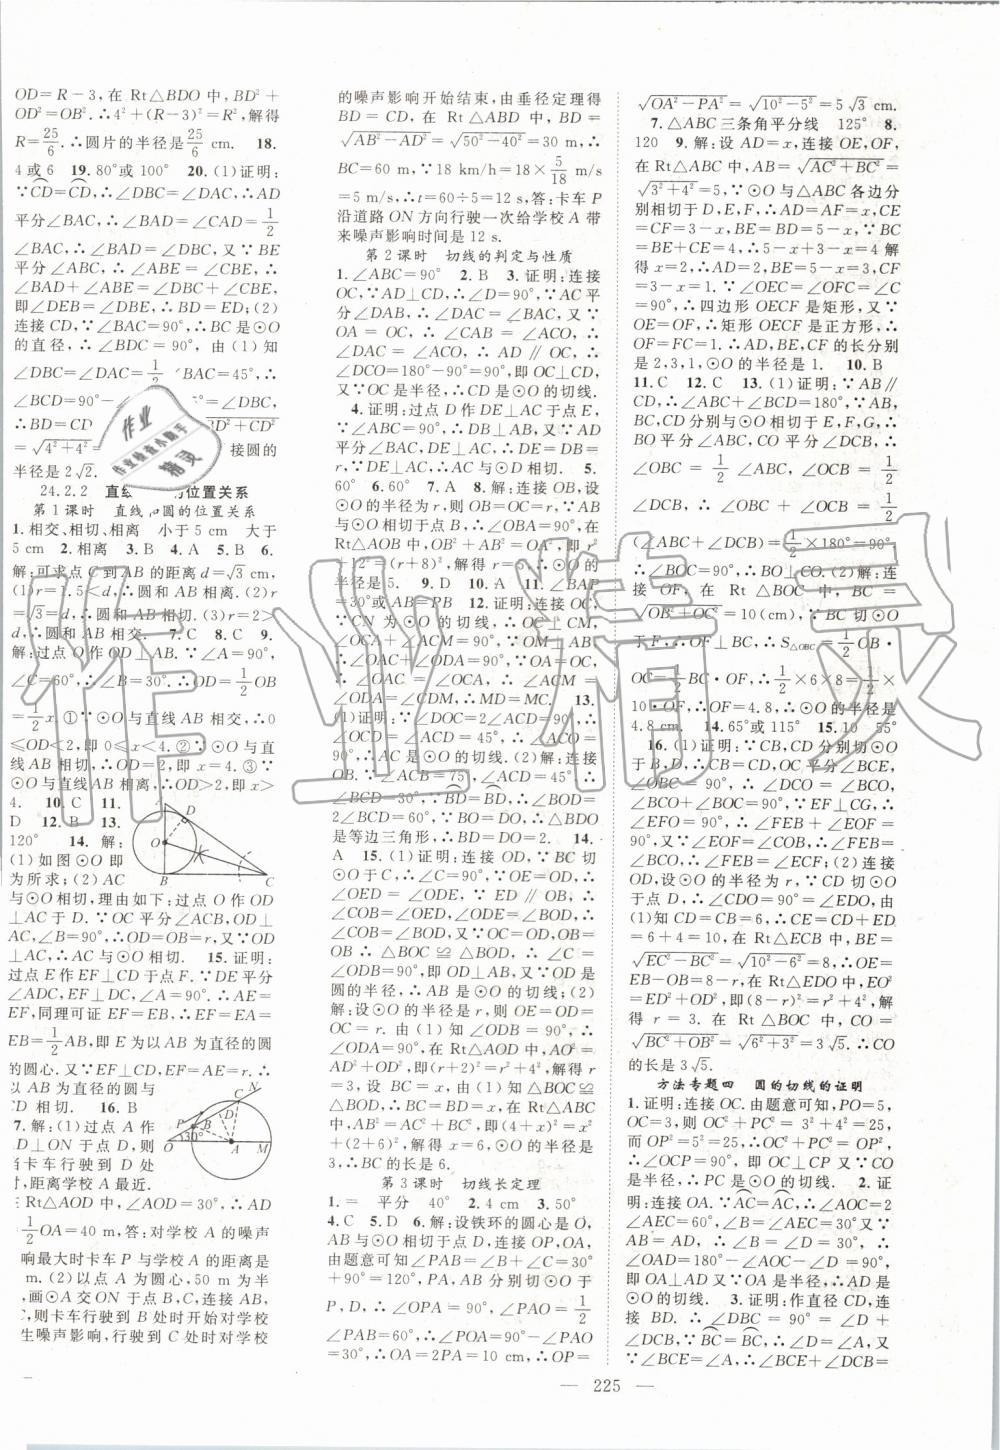 OD=R-3,在 Rt△BDO 中,BD²+
OD²=OB²,∴4²+(R-3)²=R²,解得
R=25/6.∴圆片的半径是25/6 cm. 18.
4或6 19.80°或100° 20.(1)证明:
∵CD=CD,∴∠DBC=∠DAC,∴AD
平分∠BAC,∴∠BAD=∠CAD=1/2
∠BAC,∴∠BAD=∠DBC,又∵BE
平分∠ABC,∴∠ABE=∠CBE,∴
∠BAD+∠ABE=∠DBC+∠CBE,
即∠DEB=∠DBE,∴BD=ED;(2)
连接CD,∵∠BAC=90°,∴BC是⊙O
的直径,∴∠BDC=90°,由(1)知
∠DBC=∠DAC=1/2∠BAC=45°,∴
∠BCD=90°-∠DBC,
∴BD=CD
半径是2√2.
24.2.2 直线 的位置关系
第1课时 直线 圆的位置关系
1.相交、相切、相离 小于5 cm 大于
5 cm 2.相离 3.B 4.A 5.B 6.
解:可求点C到AB的距离d=√3 cm.
(1)r=1.5<d,∴圆和AB相离.(2)r
=√3=d,∴圆和AB相切.(3)r=2>
d,∴圆和AB相交. 7.C 8.C 9.
解:过点O作OD⊥AB.∵∠C=90°,
∠C=60°,∴∠B=30°.∴OD=1/2OB
=1/2x ①∵⊙O与直线AB相交,∴0
≤OD<2,即0≤x<4.②∵⊙O与直
线AB相切,∴OD=2,即x=4.③∵
⊙O与直线AB相离,∴OD>2,即x>
4. 10.C 11.
D 12.B 13.
120° 14.解:
(1)如图⊙O即
为所求;(2)AC
与⊙O相切,理由如下:过点O作OD
⊥AC于点D.∵OC平分∠ACB,OD⊥
AC,∠B=90°,∴OD=OB=r,∴AC
与⊙O相切. 15.证明:
过点E作EF⊥CD于点F.∵DE平分
∠ADC,EF⊥CD,∠A=90°,∴AE=
EF,同理可证EF=EB,∴EF=EA=
EB=1/2AB,即E为以AB为直径的圆
的圆心.EF⊥CD,
以AB为直径的圆与
CD相切. 16.B
7.解:(1)过点A作
D⊥ON于点D,则
当卡车行驶到D处
时学校A最近.
Rt△AOD中,∠AOD=30°,∴AD
1/2OA=40 m.答:对学校A的噪声
响最大时卡车P与学校A的距离是
m.(2)以点A为圆心,50 m为半
画⊙A交ON于点B,C,连接AB
C,则卡车行驶到B处时开始对学校
生噪声影响,行驶到C处时对学校
的噪声影响开始结束,由垂径定理得
BD=CD,在Rt△ABD中,BD=
√AB²-AD²=√50²-40²=30(m),∴
BC=60 m,∵18 km/h=18×5/18 m/s=
5 m/s,∴t=60÷5=12 s,答:卡车P
沿道路ON方向行驶一次给学校A带
来噪声影响时间是12 s.
第2课时 切线的判定与性质
1.∠ABC=90° 2.B 3.证明:连接
OC,∵AD⊥CD,∴∠D=90°,∵AC平
分∠DAB,∴∠DAC=∠BAC,又∵
OA=OC,∴∠CAB=∠ACO,∴
∠DAC=∠ACO,∴AD∥OC,∴
∠DCO=180°-∠D=90°,即OC⊥CD,
又∵OC是半径,∴CD是⊙O的切线.
4.证明:过点D作DE⊥AC于点E,
∵∠ABC=90°,∴DB⊥AB,∵AD平
分∠BAC,∴DE=BD,∴AC与⊙D相切. 5.
60° 6.60° 7.A 8.解:连接OB,设
⊙O的半径是r,则OB=OC=r,∵AB
与⊙O相切于点B,∴∠OBA=90°,在
Rt△AOB中,OB²+AB²=OA²,即r²
+12²=(r+8)²,解得r=5.∴⊙O的
半径是5. 9.D 10.A 11.∠BAP
=30°或AB=PB 12.证明:连接OC,
∵CN为⊙O的切线,∴OC⊥CM,
∠OCA+∠ACM=90°,∵OM⊥AB,
∴∠OAC+∠ODA=90°,∵OA=OC,
∴∠OAC=∠OCA,∴∠ACM=
∠ODA=∠CDM,∴MD=MC. 13.
(1)证明:∵∠DOC=2∠ACD=90°,
∠OCD=∠ACD;(2)解:连接
OB.∵∠ACB=75°,∠ACD=45°,∴
∠BCD=30°,∵BD=BD,∴∠BOD=
2∠BCD=60°,∵OD=OB,∴△BDO
是等边三角形,∴BD=DO=2. 14.
A 15.(1)证明:连接OD,∵BC切
⊙O于点C,∴∠C=90°,∵DE∥OB,∴
∠OED=∠ODE,∵DE∥OB,∴
∠COB=∠OED,∠ODE=∠BOD,∴
∠COB=∠BOD,又∵OC=OD,OB=
OB ∴△BOC≌△BOD,∴∠ODB=
∠C=90°,即OD⊥AB,又∵OD是
圆的半径,∴AB是⊙O的切线;(2)
解:设⊙O的半径是r,则OE=OD=
OC=r.由(1)得∠ODB=90°,∴
∠ODA=90°,在Rt△ADO中,AO²=
OD²+AD²,即(r+2)²=r²+4²,解得
r=3,∴AC=2+6=8,∵△BOC≌
△BOD,∴BD=BC.设BC=x,则
AB²=AC²+BC²,即(4+x)²=x²
+(2+6)²,解得x=6,⊙O的半径是
3,∴BC的长是6.
第3课时 切线长定理
1.= 平分 40° 2.4 cm 3.50°
4.C 5.D 6.解:设铁环的圆心是O,
与AB、AC相切,连接OP,OA,
由题意可知∠PAB=∠C+∠B=
30°+90°=120°,PA,AB分别切⊙O于
P,D,∴∠OPA=90°,∠OAP=1/2
∠PAB=60°,∴∠POA=90°-∠PAO
=30°,∴OA=2PA=10 cm,∴OP=
√OA²-PA²=√10²-5²=5√3 cm.
7.△ABC三条角平分线 125° 8.
120 9.解:设AD=x,连接OE,OF,
在Rt△ABC中,AB=√AC²+BC²=
√3²+4²=5,∵⊙O与△ABC各边分
别相切于D,E,F,∴AD=AF=x,CE
=CF=3-x,BE=BD=5-x,∵BE
+EC=BC=4,∴5-x+3-x=4解
得x=2,∴AD=2,BE=5-2=3,CF
=3-x=1.∵∠OEC=∠OFC=∠C
=90°,∴四边形OECF是矩形,又∵
OE=OF,∴矩形OECF是正方形,∴
OF=FC=1.∴AD,BE,CF的长分别
是2,3,1,⊙O的半径是1. 10.B
11.C 12.C 13.(1)证明:∵AB∥
CD,∴∠ABC+∠BCD=180°,∵AB,
BC,CD分别与⊙O相切于E,F,G,∴
BO平分∠ABC,CO平分∠DCB,∴
∠OBC=1/2∠ABC,∠OCB=1/2
∠DCB,∴∠OBC+∠OCB=1/2
(∠ABC+∠DCB)=1/2×180°=90°,
∴∠BOC=90°,∴BO⊥CO.(2)解:连接
OF,
√OB²+OC²=10(cm),∵BC切⊙O
于F,∴OF⊥BC,∴S△OBC=1/2OB·
OC=1/2BC·OF,∴1/2×6×8=1/2×
10·OF,∴OF=4.8,∴⊙O的半径是
4.8 cm. 14.65°或115° 15.10 55°
16.(1)证明:∵CB,CD分别切⊙O
于点B,D,∴CO平分∠BCE,
∠OBC=90°,∴∠BCO=∠ECF,
∠BCO+∠COB=90°,∵EF⊥CG,∴
∠EFO=90°,∴∠FEB+∠EOF=
90°,∵∠EOF=∠COB,∴∠FEB=
∠BCO,∴∠FEB=∠ECF;(2)连接
OD,设⊙O的半径为r,∵CE切⊙O
于点D,∴∠CDO=90°=∠EDO,由
(1)知CD=CB=6,∴CE=CD+ED
=6+4=10,在Rt△ECB中,BE=
√EC²-BC²=√10²-6²=8,∴OE=
EB-OB=8-r,在Rt△EDO中,EO²
=ED²+OD²,即(8-r)²=r²+4²,解
得r=3.在Rt△BOC中,CO=
√BC²+OB²=√6²+3²=3√5.∴CO
的长是3√5.
方法专题四 圆的切线的证明
1.证明:连接OC.由题意可知,PO=5,
OC=3,则OC²+PC²=3²+4²=25,
而OP²=5²=25,∴PC²+OC²=OP²,
∴∠OCP=90°,∴OC⊥PC,又∵OC是
⊙O的半径,∴PC是⊙O的切线. 2.证
明:连接OA.∵AC=AC,∴∠AOC=2
∠AEC=60°,∵AE∥BC,∴∠D=
∠AEC=30°,∴
∠OAD=180°-∠AOC-∠D=90°,
即OA⊥AD又∵OA是半径,∴AD是
⊙O的切线. 3.证明:作直径CD,连接
BD.∴∠DBC=90°=∠D+
∠BCD.∵BC=BC,∴∠D=∠A.又
∵∠BCE=∠A,∴∠D=∠BCE,∴
225